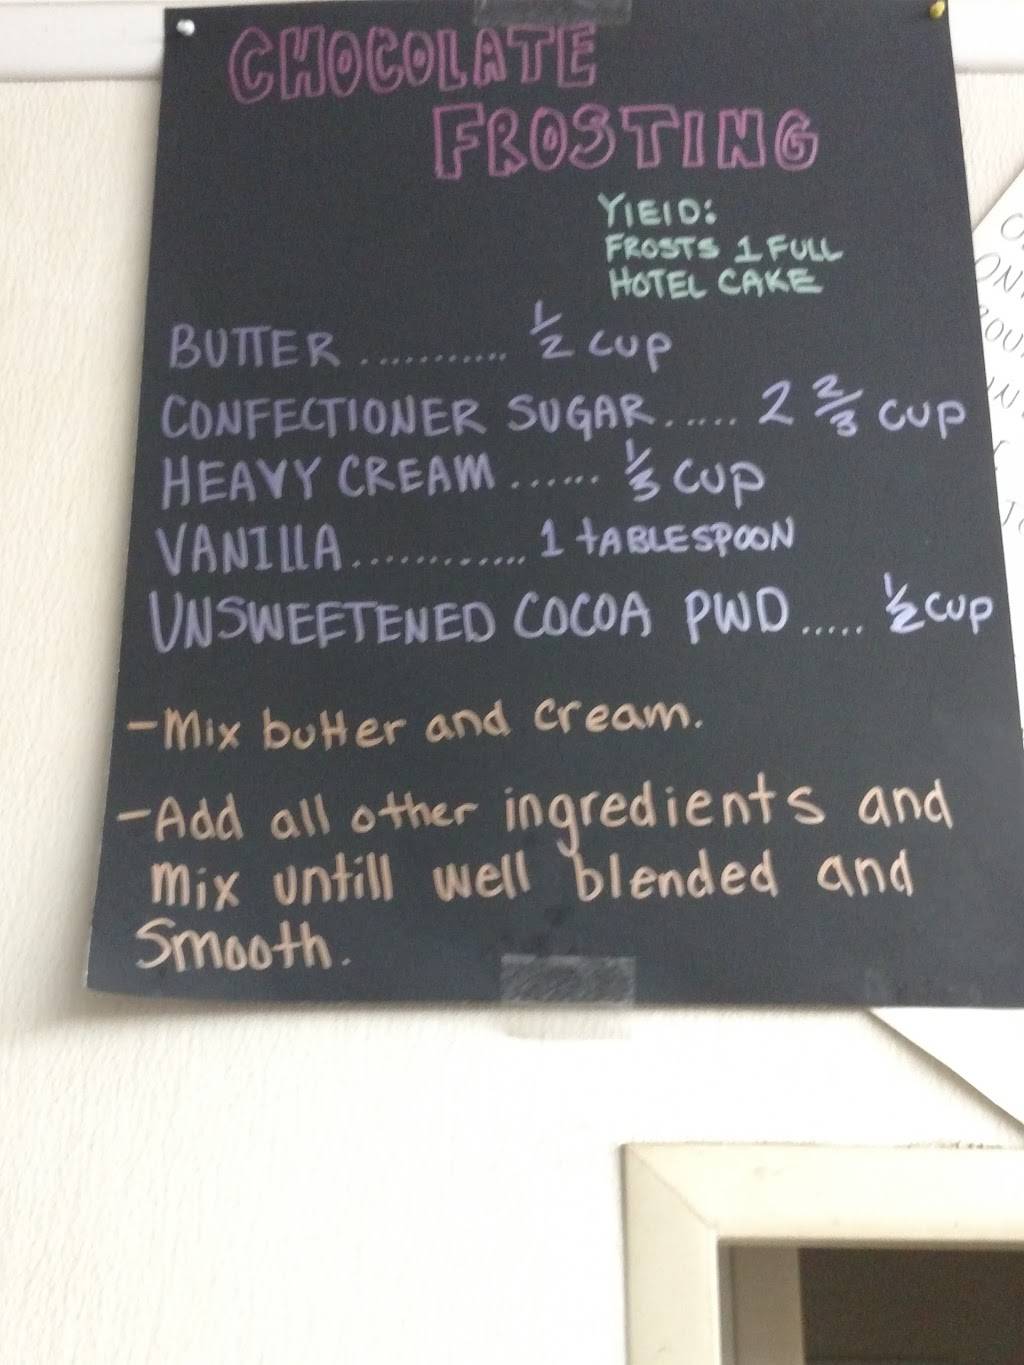 CHOCOLATE
FROSTING
YIEID:
FROSTS 1 FULL
HOTEL CAKE
BUTTER ........... 1/2 CUP
CONFECTIONER SUGAR..... 2 2/3 CUP
HEAVY CREAM ...... 1/3 CUP
VANIllA............ 1 tABLESPOON
UNSWEETENED COCOA PWD ..... 1/2 CUP
-Mix butter and cream.
-Add all other ingredients and
mix untill well blended and
Smooth.